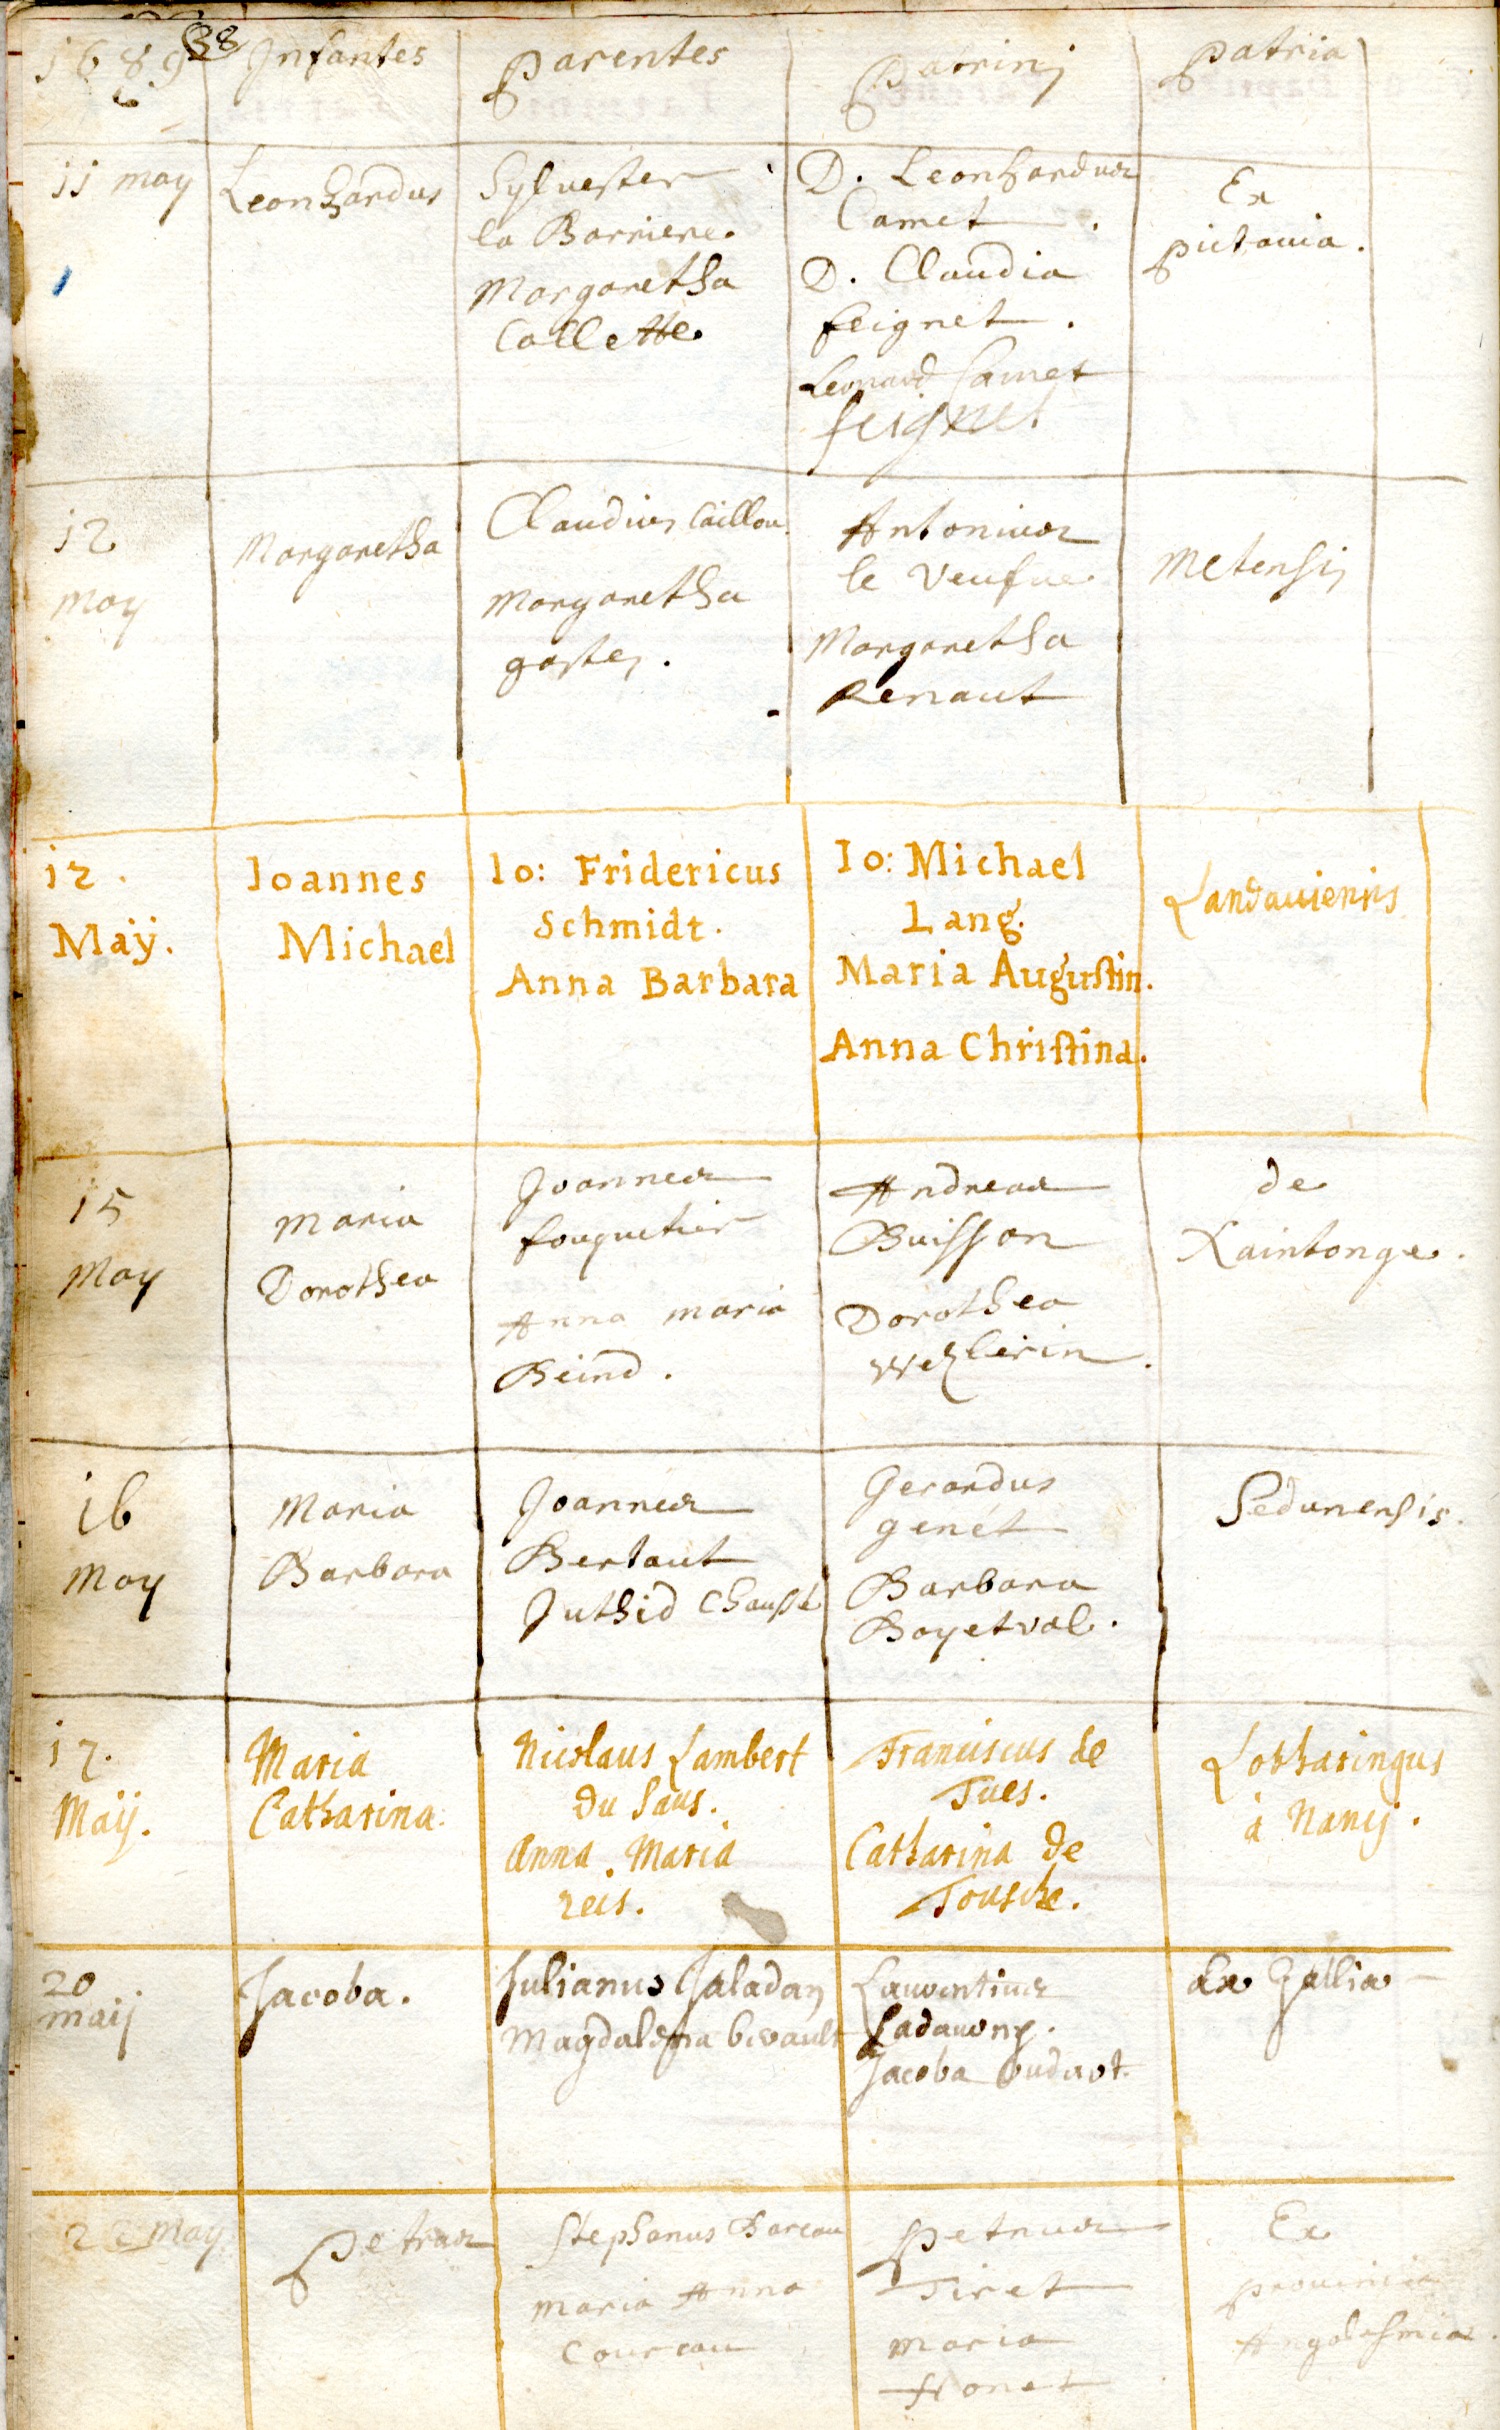 38
1689 Infantes Parentes Patrinj Patria
11 may
Leonhardus
Sylvester
la Barriere.
Margaretha
Collette
D. Leonhardus
Camet.
D. Claudia
feignet.
Leonard Camet
feignet
Ex
pictavia.
12
may
Margaretha
Claudius Caillou
Margaretha
gastes.
Antonius
le Veufue
Margaretha
Renaut
Metensis
12.
Maÿ.
Ioannes
Michael
Io: Fridericus
Schmidt.
Anna Barbara
Io: Michael
Lang.
Maria Augustin.
Anna Christina.
Landauiensis
15
May
Maria
Dorothea
Joannes
fouquetier
Anna maria
Beind.
Andreas
Buisson
Dorothea
Wezlerin.
de
Xaintonge.
16
May
Maria
Barbara
Joannes
Bertaut
Juthid Chaussé
Gerardus
genet
Barbara
Boyetval.
Sedunensis.
17.
Maij.
Maria
Catharina.
Nicolaus Lambert
du Saus.
Anna Maria
reis.
Franciscus de
Tues.
Catharina de
Tousche.
Lotharingus
à Nancÿ.
20
maij
Jacoba.
Julianus Jaladan
Magdalena
Laurentius
Jacoba
Ex Gallia
22 May
Petrus
Stephanus Bareau
Maria Anna
Coureau
Petrus
Tiret
Maria
fronet
Ex
provincia